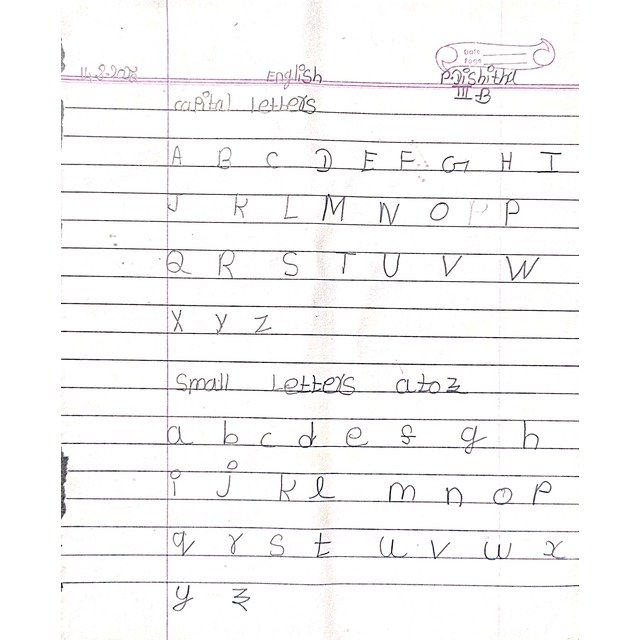 Date
Page
14.8.2028 English P.Dishitha
III B
capital letters
A B C D E F G H I
J K L M N O P P
Q R S T U V W
X Y Z
Small Letters a to z
a b c d e f g h
i j k l m n o p
q r s t u v w x
y z